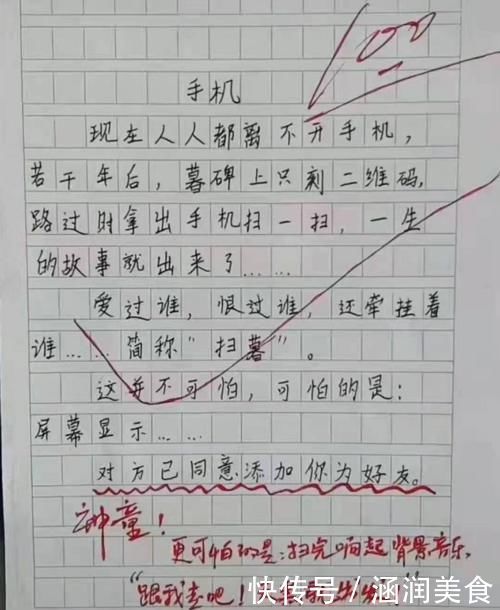 100
手机
现在人人都离不开手机，
若干年后，暮碑上只刻二维码，
路过时拿出手机扫一扫，一生
的故事就出来了……
爱过谁，恨过谁，还牵挂着
谁……简称"扫暮"。
这并不可怕，可怕的是：
屏幕显示……
对方已同意添加你为好友。
神童！
更可怕的是：扫完响起背景音乐
"跟我走吧！
快传号 / 涵润美食